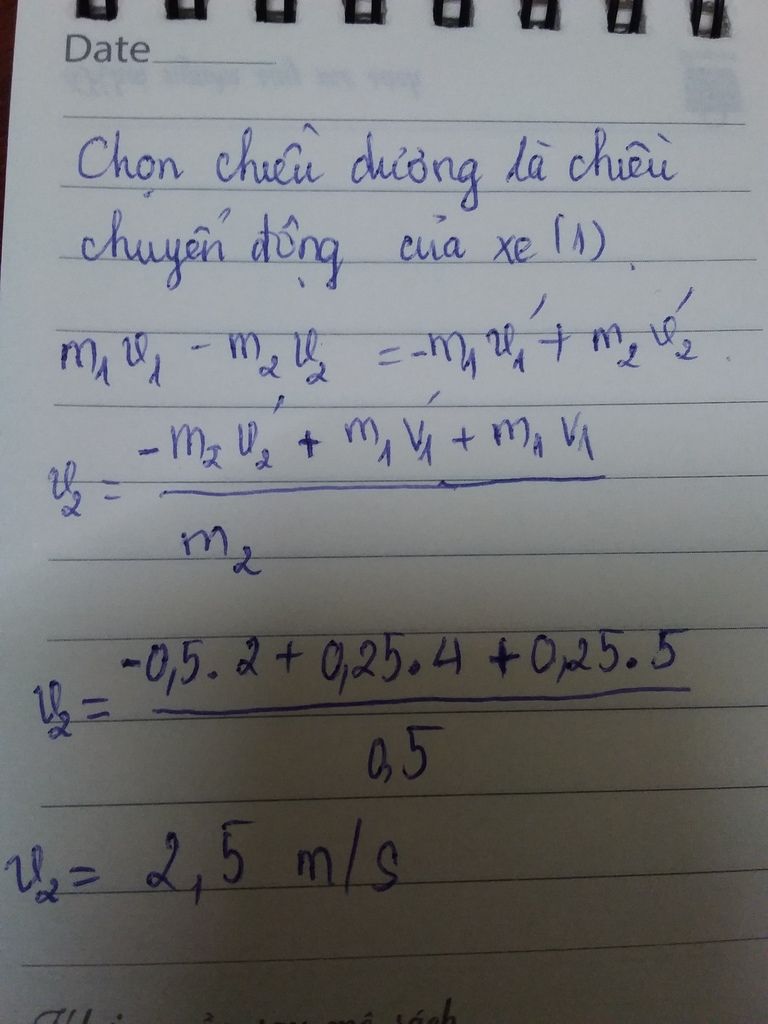 Date
Chọn chiều dương là chiều
chuyển động của xe (1).
m₁v₁ - m₂v₂ = -m₁v₁' + m₂v₂'.
v₂ = (-m₂v₂' + m₁v₁' + m₁v₁) / m₂
v₂ = (-0,5.2 + 0,25.4 + 0,25.5) / 0,5
v₂ = 2,5 m/s